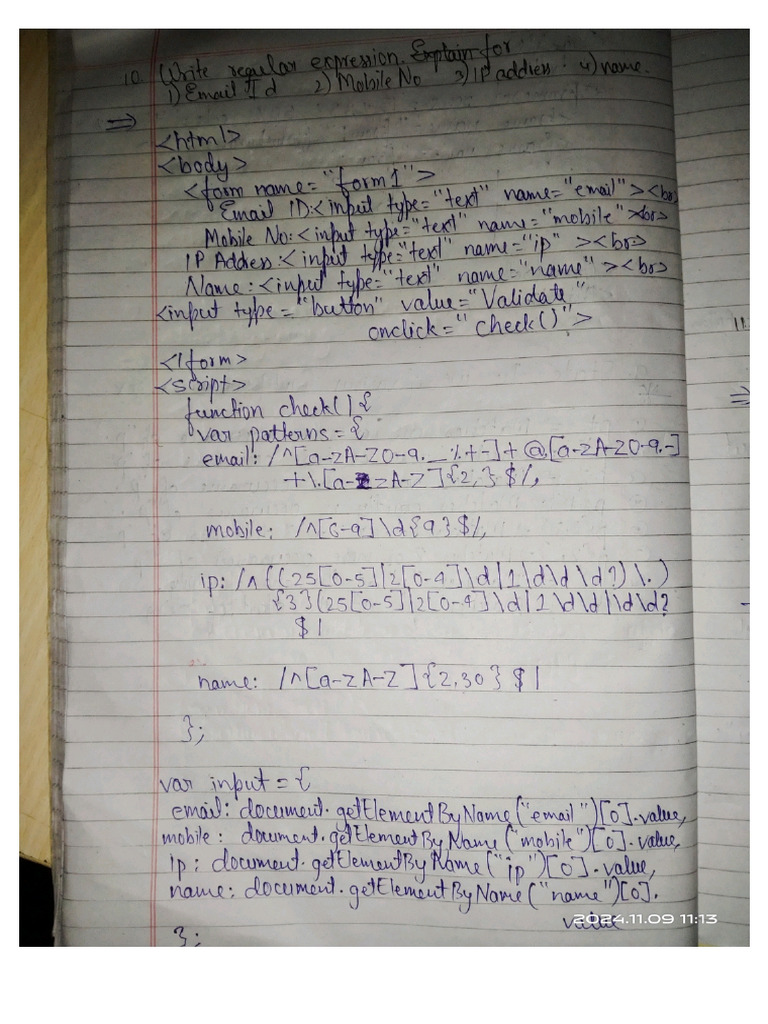 10. Write regular expression. Explain for
1) Email Id 2) Mobile No 3) IP address 4) name.
⇒
<html>
<body>
<form name="form1">
Email ID:<input type="text" name="email"><br>
Mobile No:<input type="text" name="mobile"><br>
IP Address:<input type="text" name="ip"><br>
Name:<input type="text" name="name"><br>
<input type="button" value="Validate"
onclick="check()">
11.
</form>
<script>
⇒
function check(){
var patterns={
email: /^[a-zA-Z0-9._%+-]+@[a-zA-Z0-9.-]
+\.[a-zA-Z]{2,}$/,
mobile: /^[6-9]\d{9}$/,
ip: /^((25[0-5]|2[0-4]\d|1\d\d|\d?)\.)
{3}(25[0-5]|2[0-4]\d|1\d\d|\d\d?
$/
name: /^[a-zA-Z]{2,30}$/
};
var input={
email: document.getElementByName("email")[0].value,
mobile: document.getElementByName("mobile")[0].value,
ip: document.getElementByName("ip")[0].value,
name: document.getElementByName("name")[0].
value
2024.11.09 11:13
};